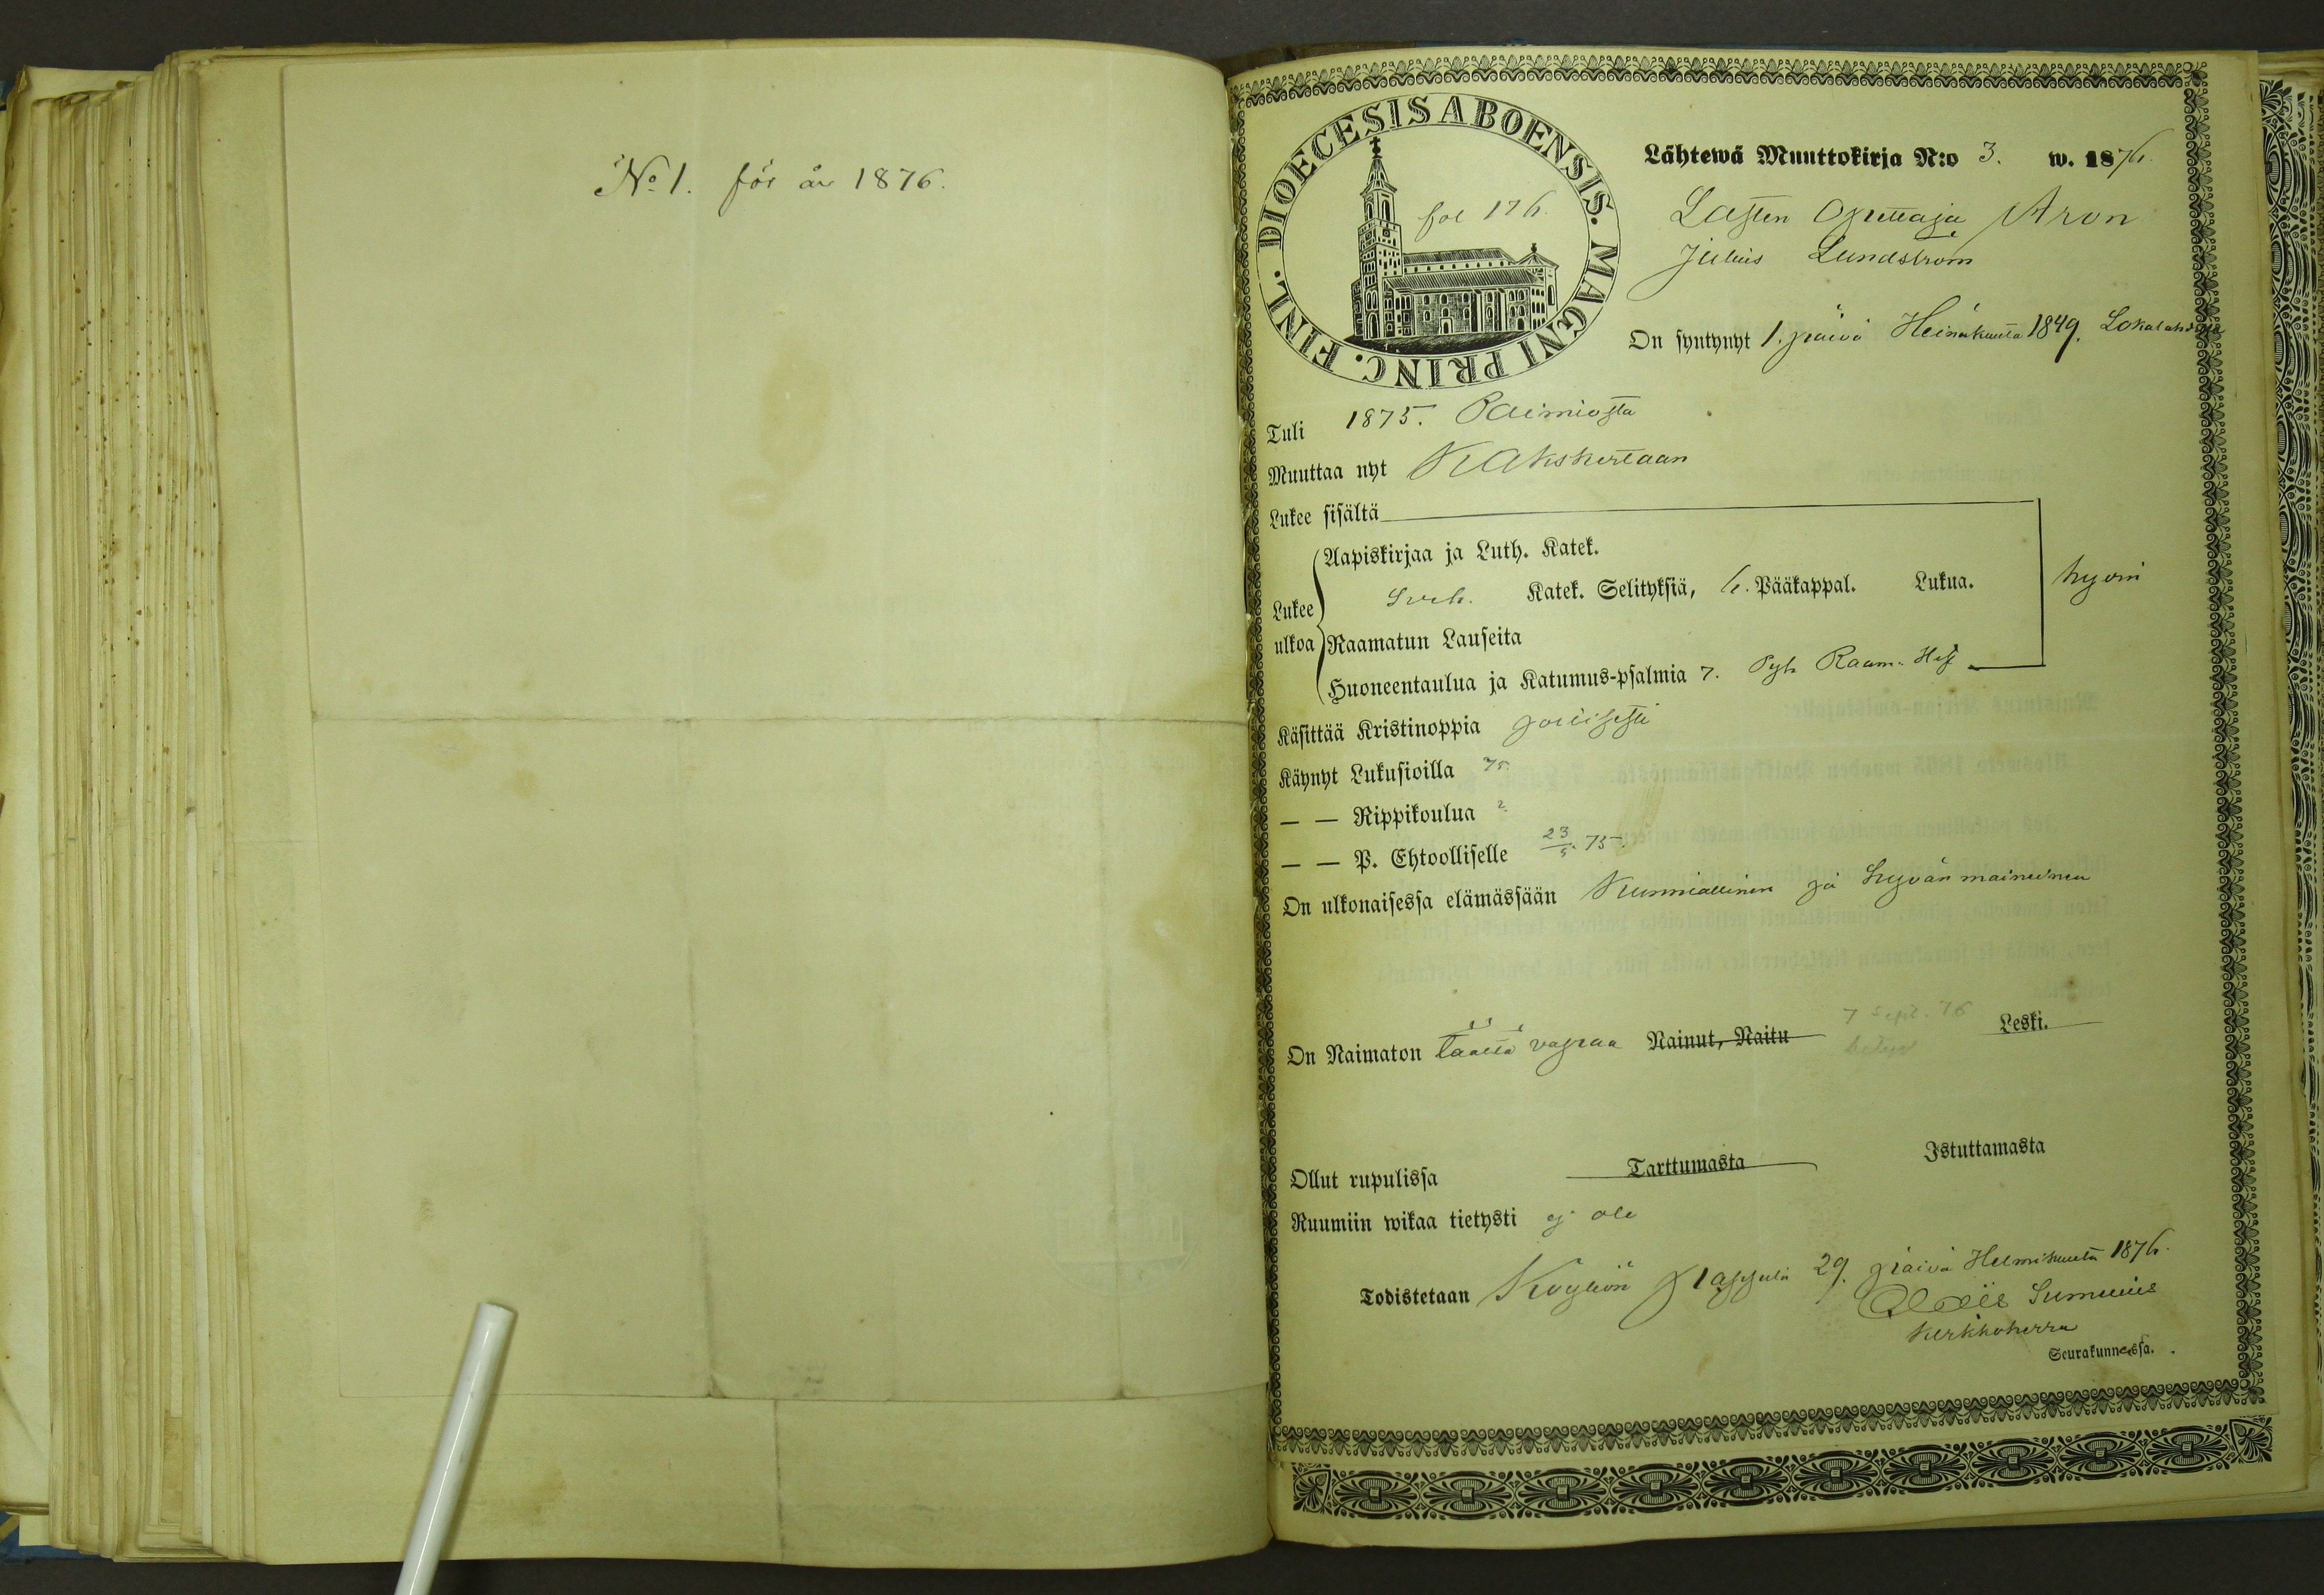 No 1. för år 1876.
DIOECESIS ABOENSIS. MAGNI PRINC. FINL.
fol 176.
Lähtewä Muuttokirja N:o 3. w. 1876.
Lasten Opettaja Aron
Julius Lundström
On syntynyt 1. päivä Heinäkuuta 1849. Lokalahdella
Tuli 1875. Paimiosta
Muuttaa nyt Kakskertaan
Lukee sisältä
Aapiskirjaa ja Luth. Katek.
Lukee ulkoa
Sveb. Katek. Selityksiä, 6. Pääkappal. Lukua. hyvin
Raamatun Lauseita
Huoneentaulua ja Katumus-psalmia 7. Pyh Raam. Hist
Käsittää Kristinoppia
Käynyt Lukusioilla 75
— — Rippikoulua 2.
— — P. Ehtoolliselle 23/5 75.
On ulkonaisessa elämässään Kunniallinen ja hyvän maineinen
7 Sept. 76
On Naimaton täältä vapaa Nainut, Naitu Leski.
Ollut rupulissa Tarttumasta Istuttamasta
Ruumiin wikaa tietysti ej ole
Todistetaan Köyliön Pappila 29. päivä Helmikuuta 1876.
Sumelius
Kirkkoherra
Seurakunnassa.